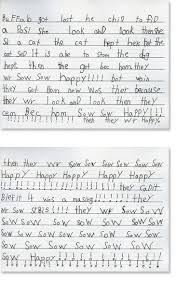 Buffalo got lost he chip to FiD
a Post She look and look then she
Si a cat the cat hept hex but the
cat SeD It is abe to Stom the dog
hept then the got bec hom they
wr Sow Sow Happy!!!! but wein
they Got hom new Was ther because
they wr look and look then they
cam Bec hom Sow Sow Happy!!!
!!!!!!!!!!!!! then they wr Happy
then they wr Sow Sow Sow Sow Sow Sow
Happy Happy Happy Happy Happy
!!!!!!!!!!!!!!!!!!!!!! they
BleFit it was a masing!!!!!!! they
wr Sow !!!!! they wr Sow Sow
Sow Sow Sow Sow Sow Sow Sow
Sow Sow Sow Sow Sow Sow Sow Sow
Sow Sow Sow Sow Sow Sow Happy
Sow Happy!!!!!!!!!!!!!!
!!!!!!!!!!!!!!!!!!!!!!